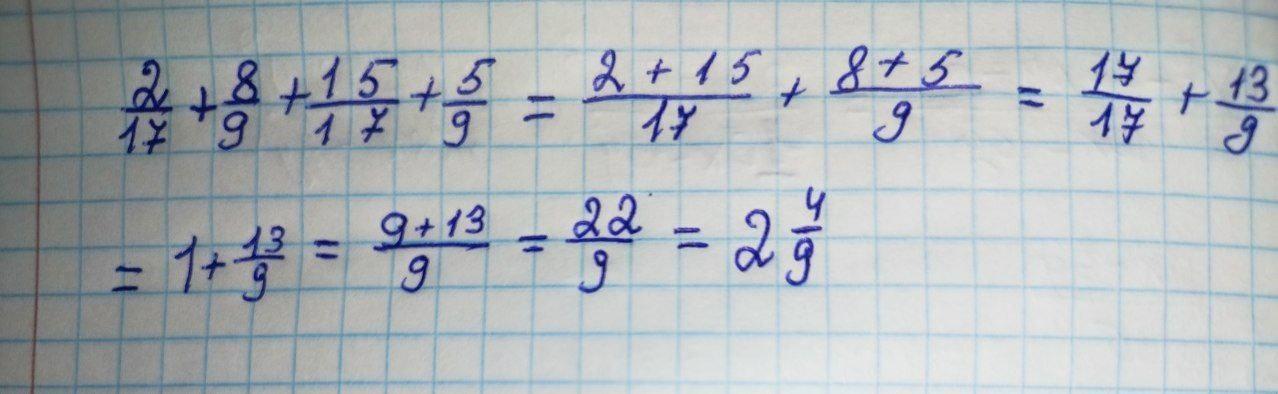 2/17 + 8/9 + 15/17 + 5/9 = (2 + 15)/17 + (8 + 5)/9 = 17/17 + 13/9
= 1 + 13/9 = (9 + 13)/9 = 22/9 = 2 4/9